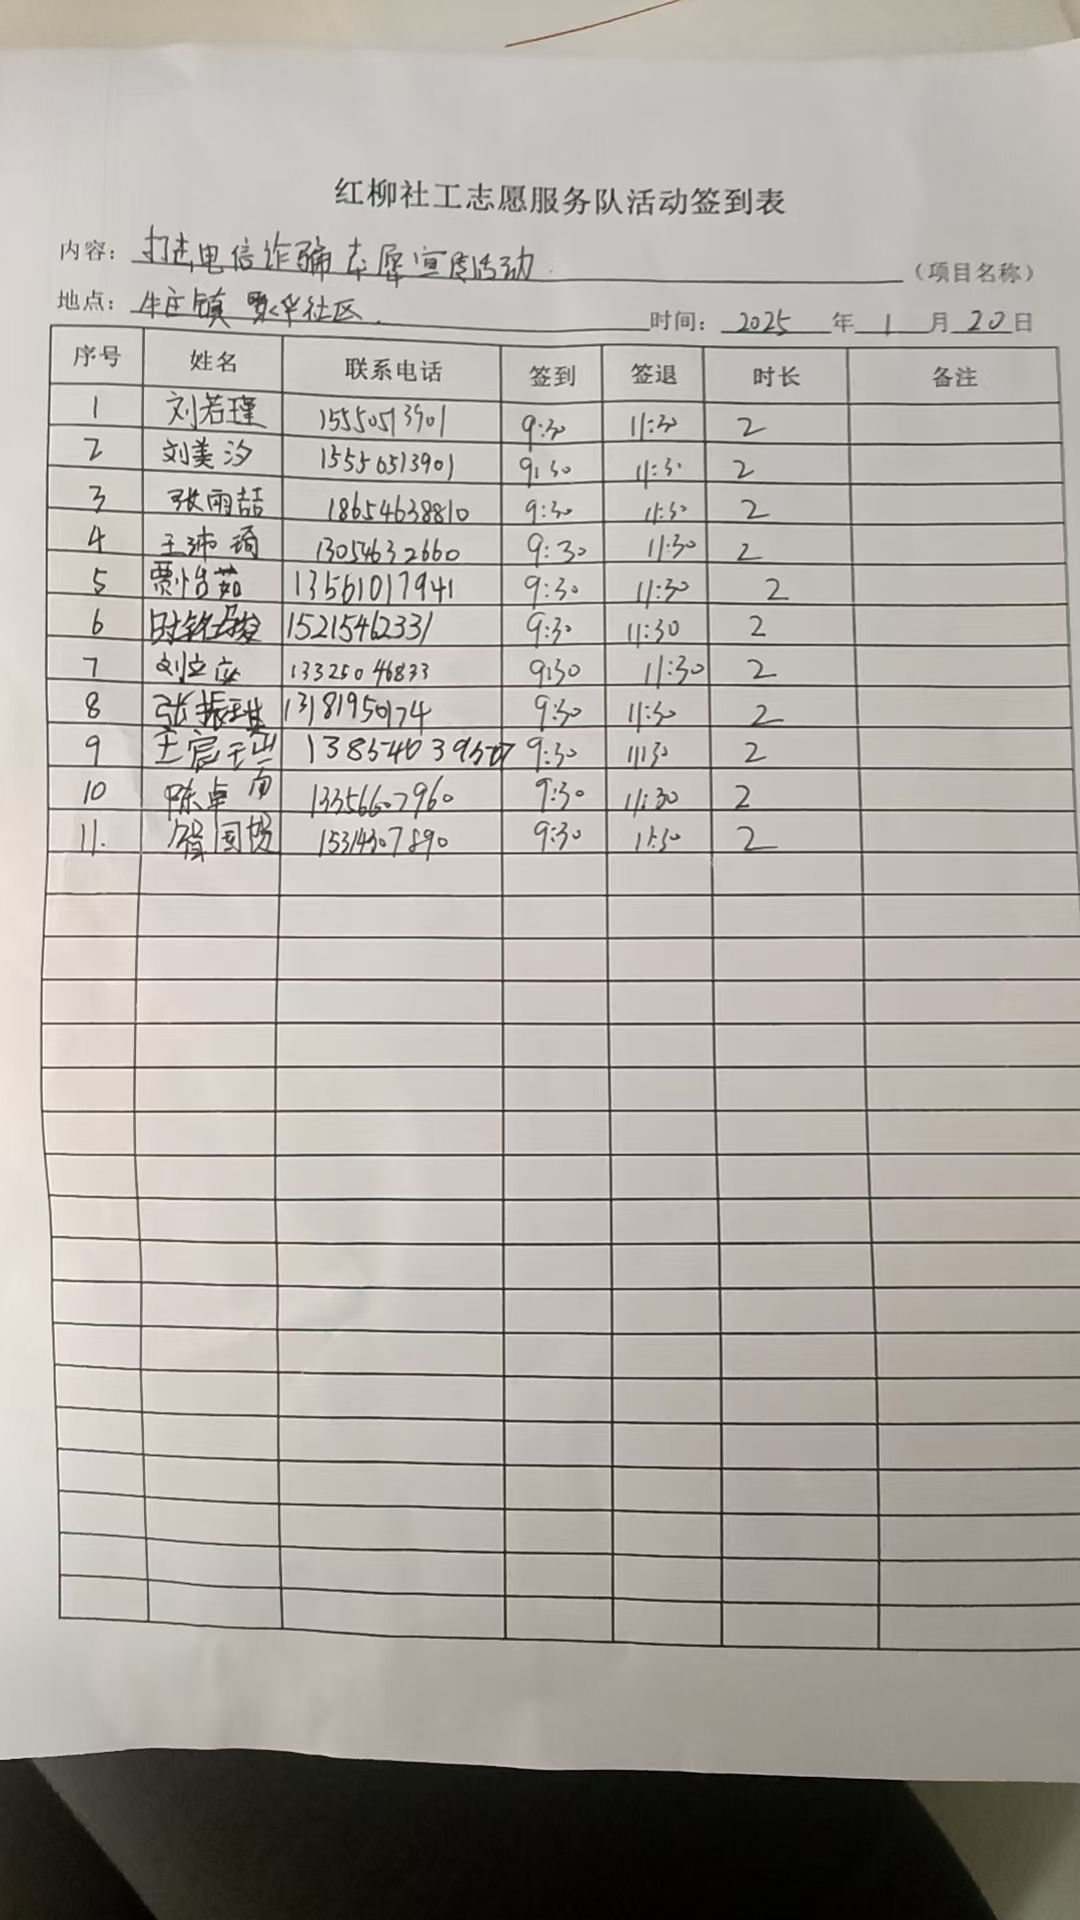 红柳社工志愿服务队活动签到表
内容：打击电信诈骗 宣传活动（项目名称）
地点：牛庄镇 聚华社区 时间：2025年1月20日
序号 姓名 联系电话 签到 签退 时长 备注
1 刘若瑾 15550513901 9:30 11:30 2
2 刘美汐 15550513901 9:30 11:30 2
3 张雨喆 18654638810 9:30 11:30 2
4 王沛琦 13054632660 9:30 11:30 2
5 贾怡茹 13561017941 9:30 11:30 2
6 15215462331 9:30 11:30 2
7 刘立应 13325046833 9:30 11:30 2
8 张振琪 13181950174 9:30 11:30 2
9 王宸 9:30 11:30 2
10 陈卓南 13356607960 9:30 11:30 2
11. 国 15314307890 9:30 11:30 2